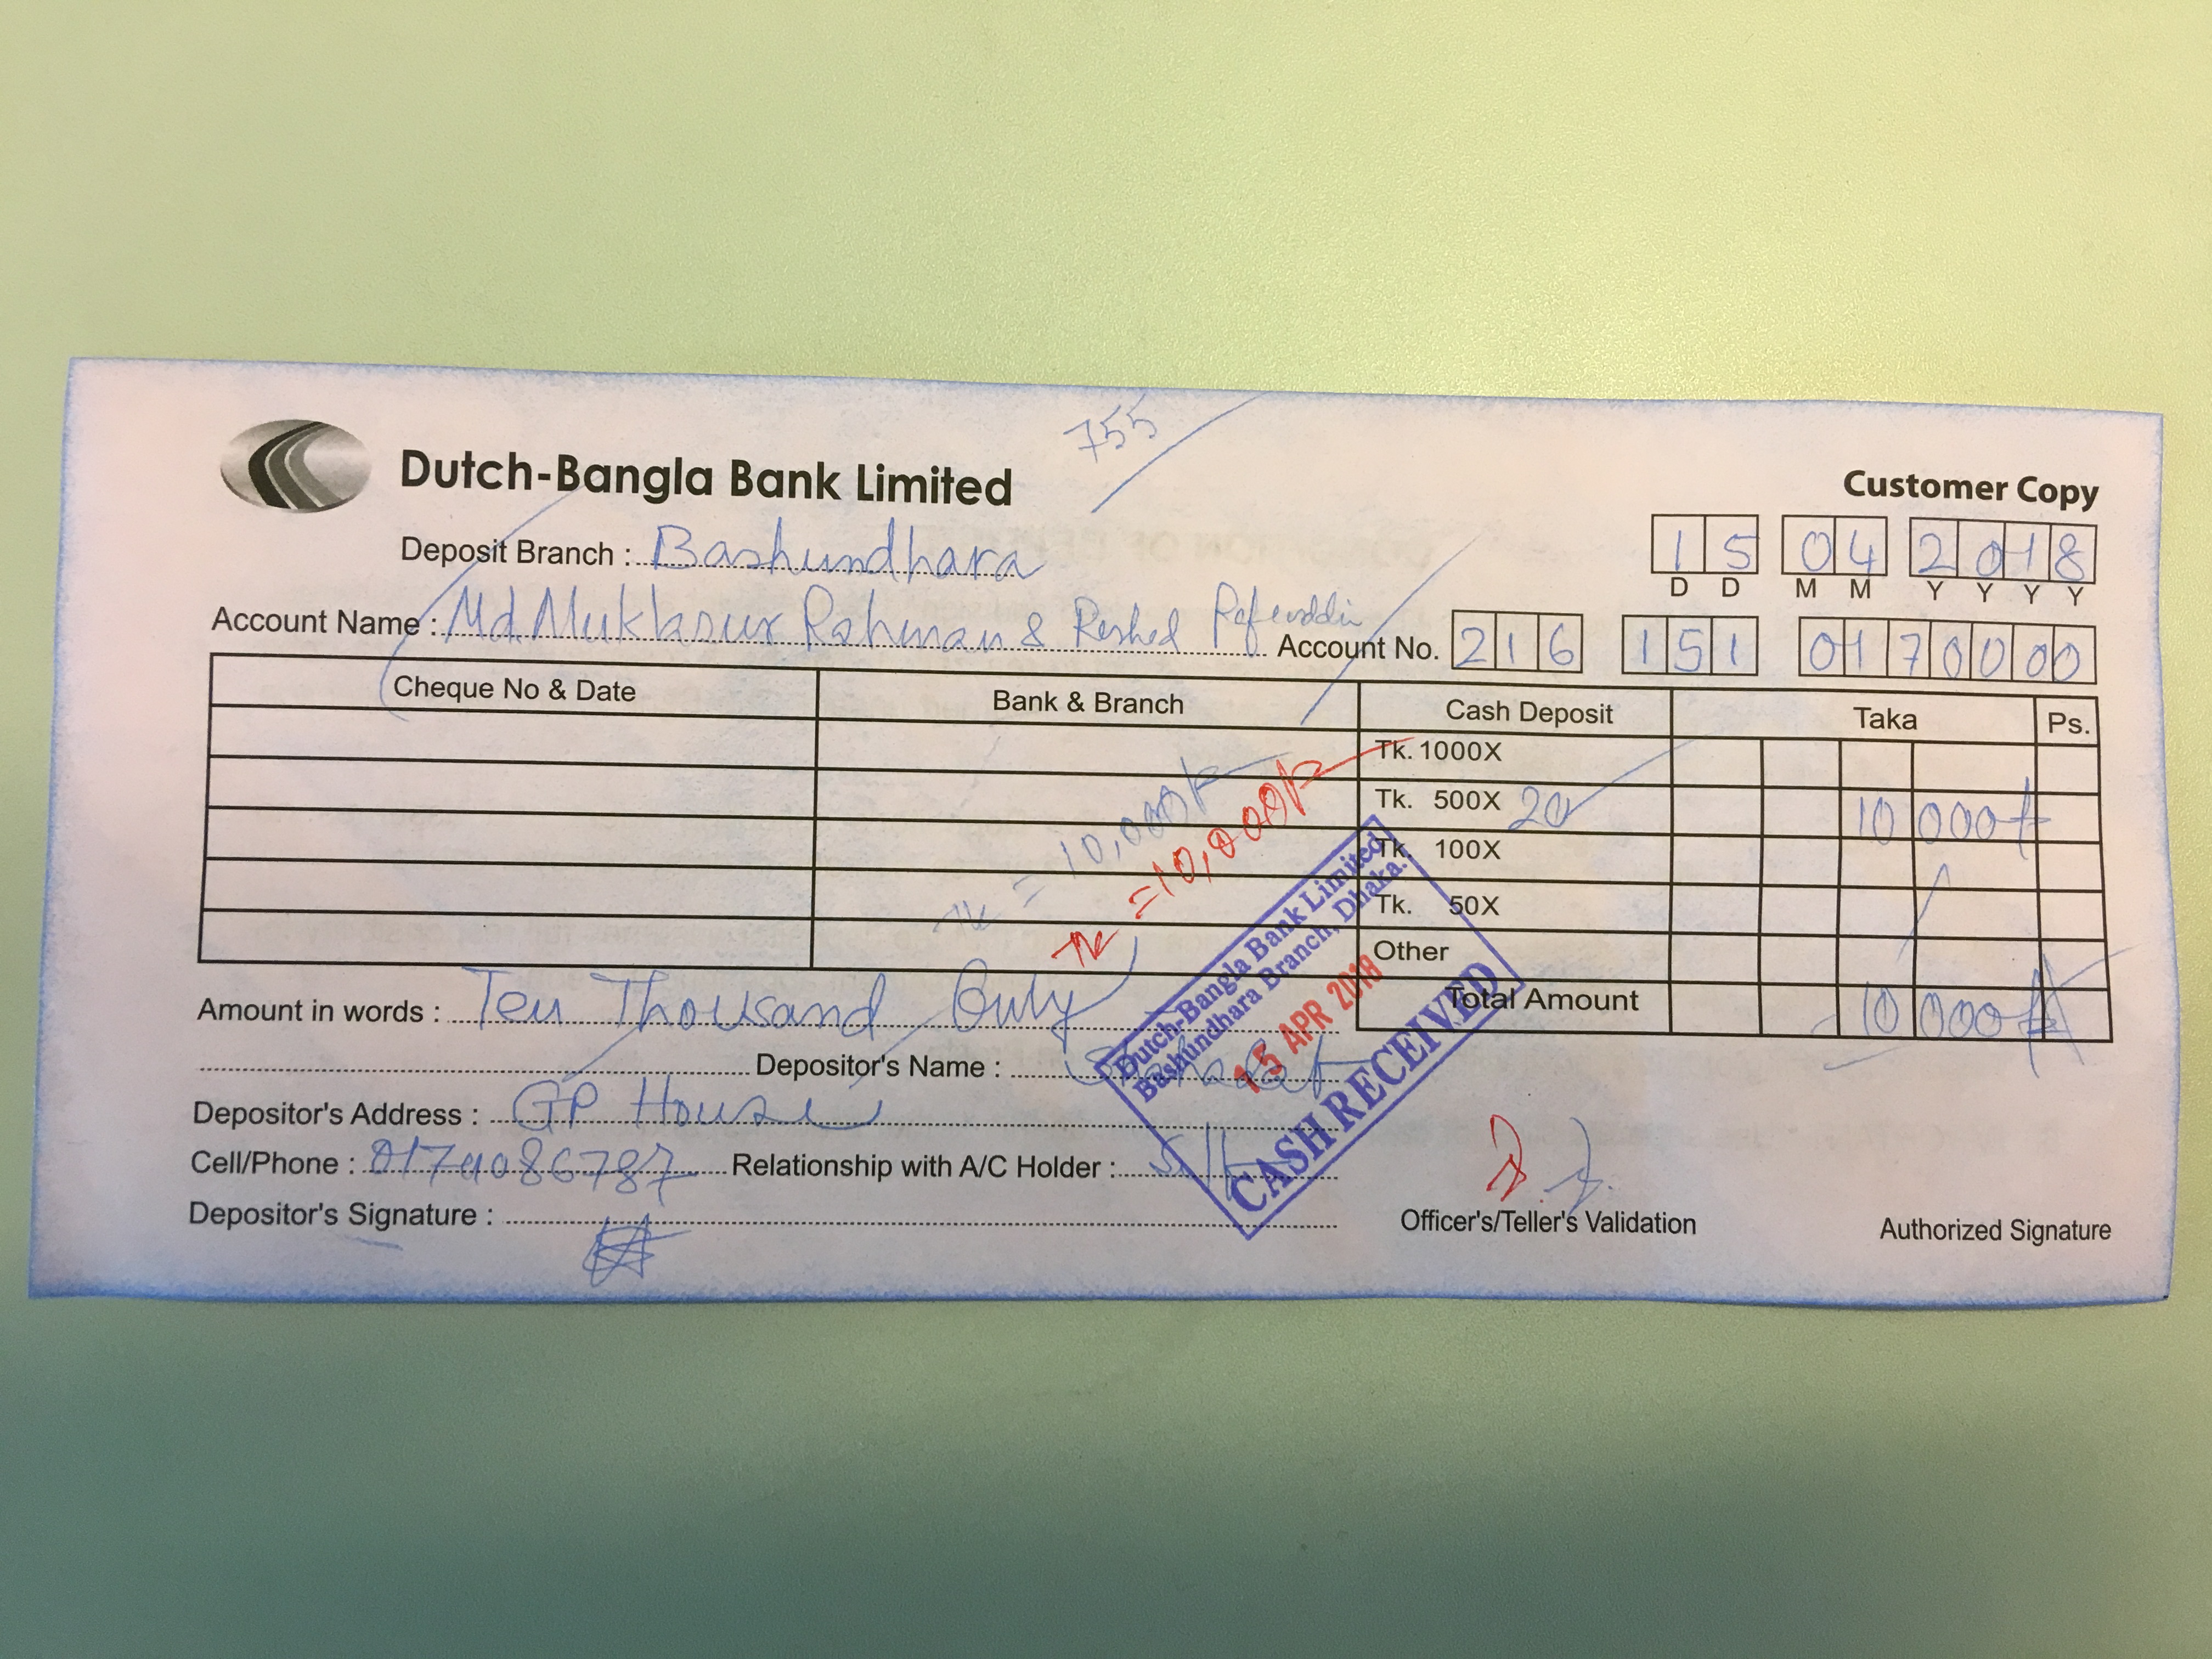 755
Dutch-Bangla Bank Limited
Customer Copy
Deposit Branch : Bashundhara
15 04 2018
D D M M Y Y Y Y
Account Name : Md. Muklasur Rahman & Rashed
Account No. 216 151 0170000
Cheque No & Date Bank & Branch Cash Deposit Taka Ps.
Tk. 1000X
Tk. 500X 20 10 000
10,000
Tk. 100X
Tk. 50X
=10,000
Other
Total Amount 10 000
Amount in words : Ten Thousand Only
Depositor's Name :
Depositor's Address : GP House
Cell/Phone : Relationship with A/C Holder :
Depositor's Signature :
Dutch-Bangla Bank Limited
Bashundhara Branch, Dhaka.
15 APR 2018
CASH RECEIVED
Officer's/Teller's Validation
Authorized Signature